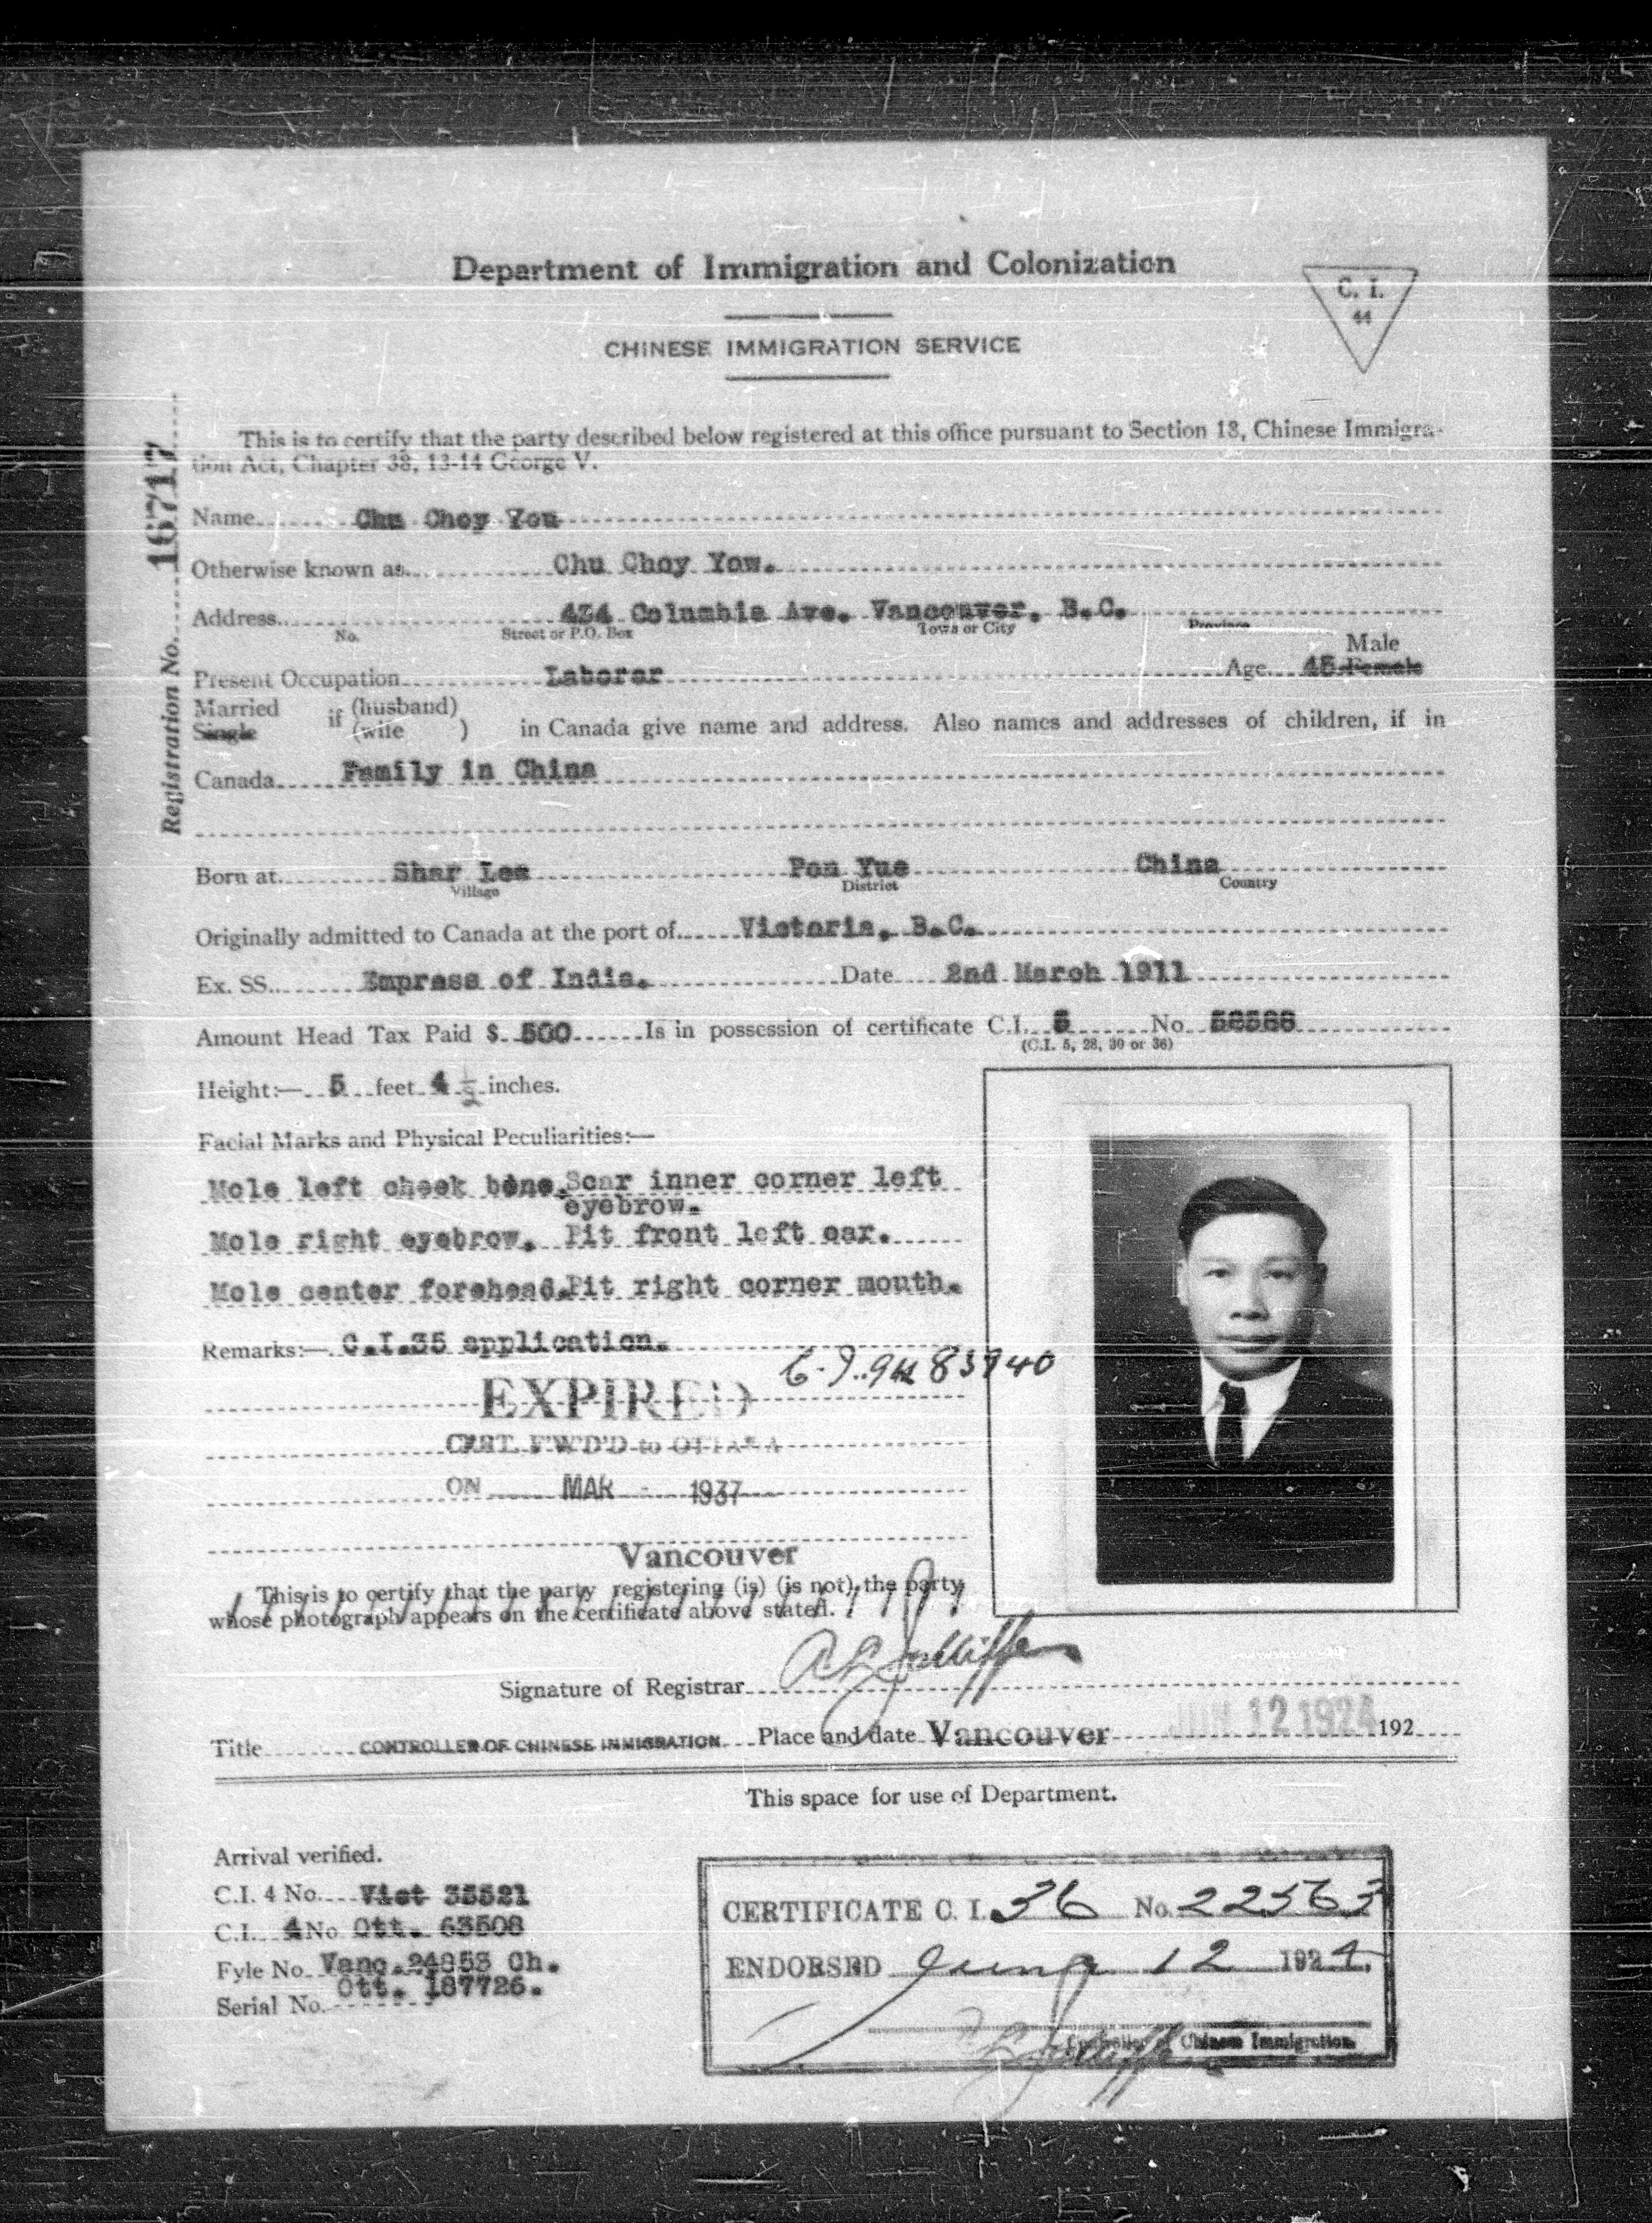 Department of Immigration and Colonization
C. I.
44
CHINESE IMMIGRATION SERVICE
Registration No. 16717
This is to certify that the party described below registered at this office pursuant to Section 18, Chinese Immigra-
tion Act, Chapter 38, 13-14 George V.
Name Chu Choy You
Otherwise known as Chu Choy Yow.
Address 434 Columbia Ave. Vancouver, B.C.
No. Street or P.O. Box Town or City Province
Male
Present Occupation Laborer Age 45 Female
Married if (husband)
Single (wife ) in Canada give name and address. Also names and addresses of children, if in
Canada Family in China
Born at Shar Lea Pon Yue China
Village District Country
Originally admitted to Canada at the port of Victoria, B.C.
Ex. SS. Empress of India. Date 2nd March 1911
Amount Head Tax Paid $ 500 Is in possession of certificate C.I. 5 No
(C.I. 5, 28, 30 or 36)
Height:— 5 feet 4 1/2 inches.
Facial Marks and Physical Peculiarities:—
Mole left cheek bone. Scar inner corner left
eyebrow.
Mole right eyebrow. Pit front left ear.
Mole center forehead. Pit right corner mouth.
Remarks:— C.I.35 application.
83940
EXPIRED
CERT. F'W'D'D to OTTAWA
ON MAR 1937
Vancouver
This is to certify that the party registering (is) (is not) the party
whose photograph appears on the certificate above stated.
Signature of Registrar
Title CONTROLLER OF CHINESE IMMIGRATION Place and date Vancouver JUN 12 1924 192
This space for use of Department.
Arrival verified.
C.I. 4 No. Vict 35521
C.I. 4 No Ott. 63508
Fyle No. Vanc. 24853 Ch.
Ott. 187726.
Serial No.
CERTIFICATE C. I. 36 No. 22563
ENDORSED June 12 1924.
Controller of Chinese Immigration